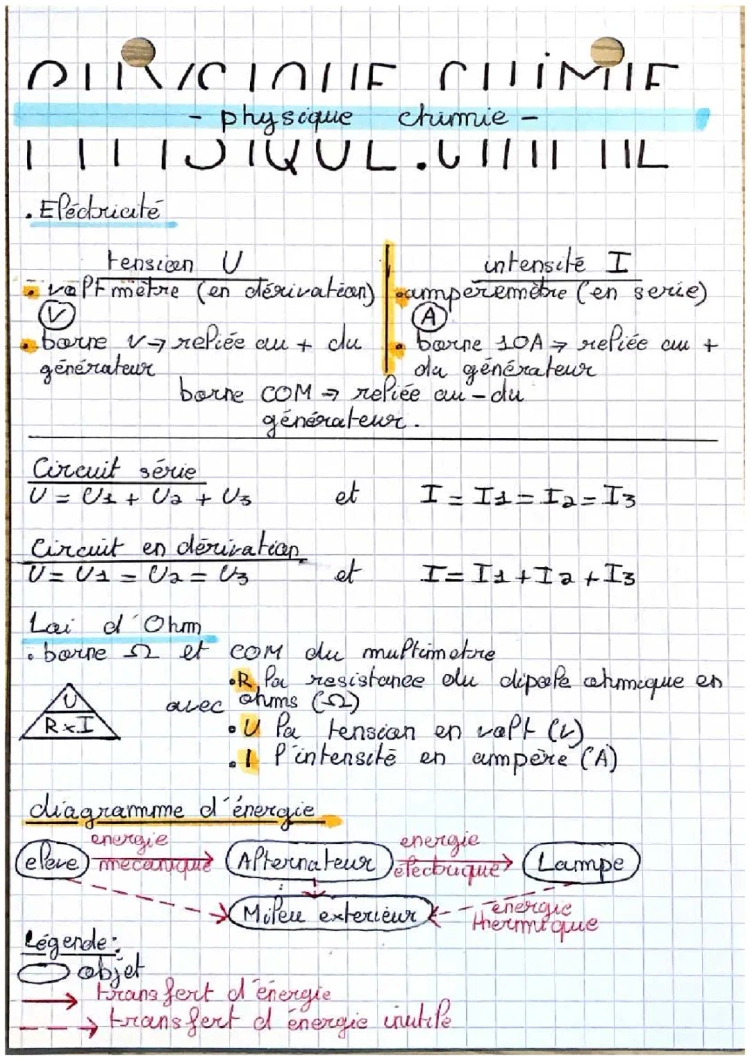 PHYSIQUE CHIMIE
- physique chimie -
PHYSIQUE.CHIMIE
. Eléctricité
tension U
intensité I
• voltmètre (en dérivation)
• ampèremètre (en serie)
V
A
• borne V → reliée au + du
générateur
• borne 10A → reliée au +
du générateur
borne COM → reliée au - du
générateur.
Circuit série
U = U1 + U2 + U3 et I = I1 = I2 = I3
Circuit en dérivation
U = U1 = U2 = U3 et I = I1 + I2 + I3
Loi d'Ohm
• borne Ω et COM du multimetre
U
R x I
avec
• R la resistance du dipole ohmique en
ohms (Ω)
• U la tension en volt (V)
• I l'intensité en ampère (A)
diagramme d'énergie
eleve
energie
mecanique
Alternateur
energie
électrique
Lampe
Milieu exterieur
energie
thermique
Légende:
objet
→ transfert d'énergie
- - → transfert d'énergie inutile